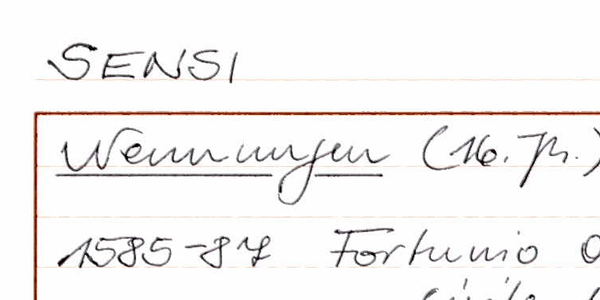 SENSI
Wennungen (16. Jh.)
1585-87 Fortunio